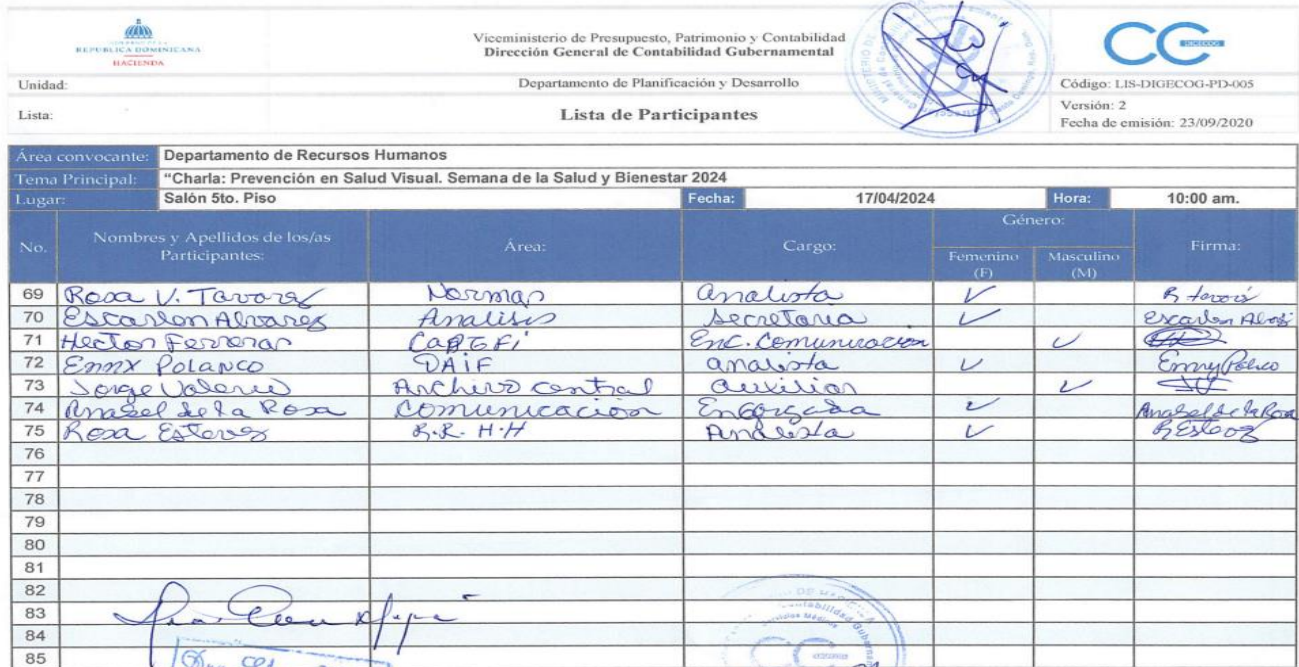 REPÚBLICA DOMINICANA
HACIENDA
Viceministerio de Presupuesto, Patrimonio y Contabilidad
Dirección General de Contabilidad Gubernamental
DIGECOG
Unidad: Departamento de Planificación y Desarrollo Código: LIS-DIGECOG-PD-005
Lista: Lista de Participantes Versión: 2
Fecha de emisión: 23/09/2020
Área convocante: Departamento de Recursos Humanos
Tema Principal: "Charla: Prevención en Salud Visual. Semana de la Salud y Bienestar 2024
Lugar: Salón 5to. Piso Fecha: 17/04/2024 Hora: 10:00 am.
No. Nombres y Apellidos de los/as Participantes: Área: Cargo: Género: Femenino (F) Masculino (M) Firma:
69 Rosa V. Tavarez Normas analista ✓
70 Escarlen Alvarez Analisis Secretaria ✓ Escarlen
71 Hector Ferreras Enc. Comunicacion ✓
72 Enny Polanco DAIF analista ✓ Enny
73 Jorge Valerio Archivo central auxiliar ✓
74 Anabel de la Rosa Comunicación Encargada ✓ Anabel de la Rosa
75 Rosa Estevez R.R. H.H Analista ✓
76
77
78
79
80
81
82
83
84
85